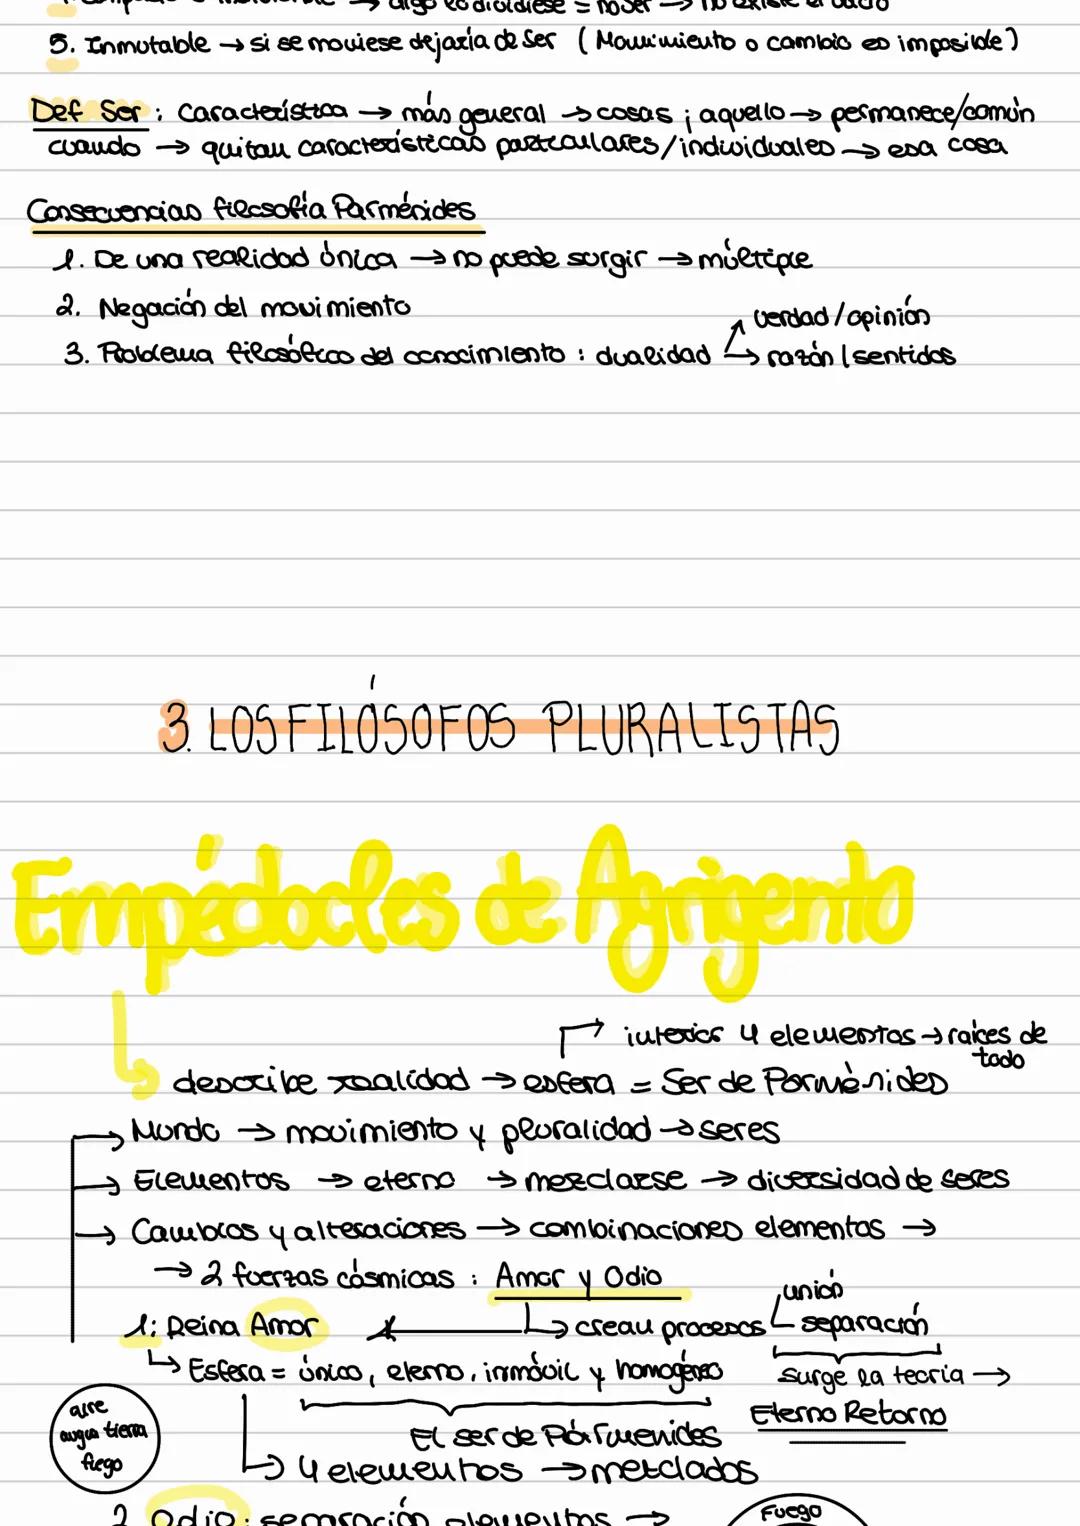 → algo lo dividiese = no ser → no existe el vacío
5. Inmutable → si se moviese dejaría de ser (Movimiento o cambio es imposible)
Def Ser: Característica → más general → cosas; aquello → permanece/común
cuando → quitan características particulares/individuales → esa cosa
Consecuencias filosofía Parménides
1. De una realidad única → no puede surgir → múltiple
2. Negación del movimiento
verdad/opinión
3. Problema filosófico del conocimiento: dualidad → razón/sentidos
3. LOS FILÓSOFOS PLURALISTAS
Empédocles de Agrigento
interior 4 elementos → raíces de todo
describe realidad → esfera = Ser de Parménides
→ Mundo → movimiento y pluralidad → seres
→ Elementos → eterno → mezclarse → diversidad de seres
→ Cambios y alteraciones → combinaciones elementos →
→ 2 fuerzas cósmicas: Amor y Odio
unión
1: Reina Amor ← → crean procesos separación
→ Esfera = único, eterno, inmóvil y homogéneo
surge la teoría →
Eterno Retorno
aire
augua tierra
fuego
El ser de Pármenides
→ 4 elementos → mezclados
2. Odio: separación elementos →
Fuego